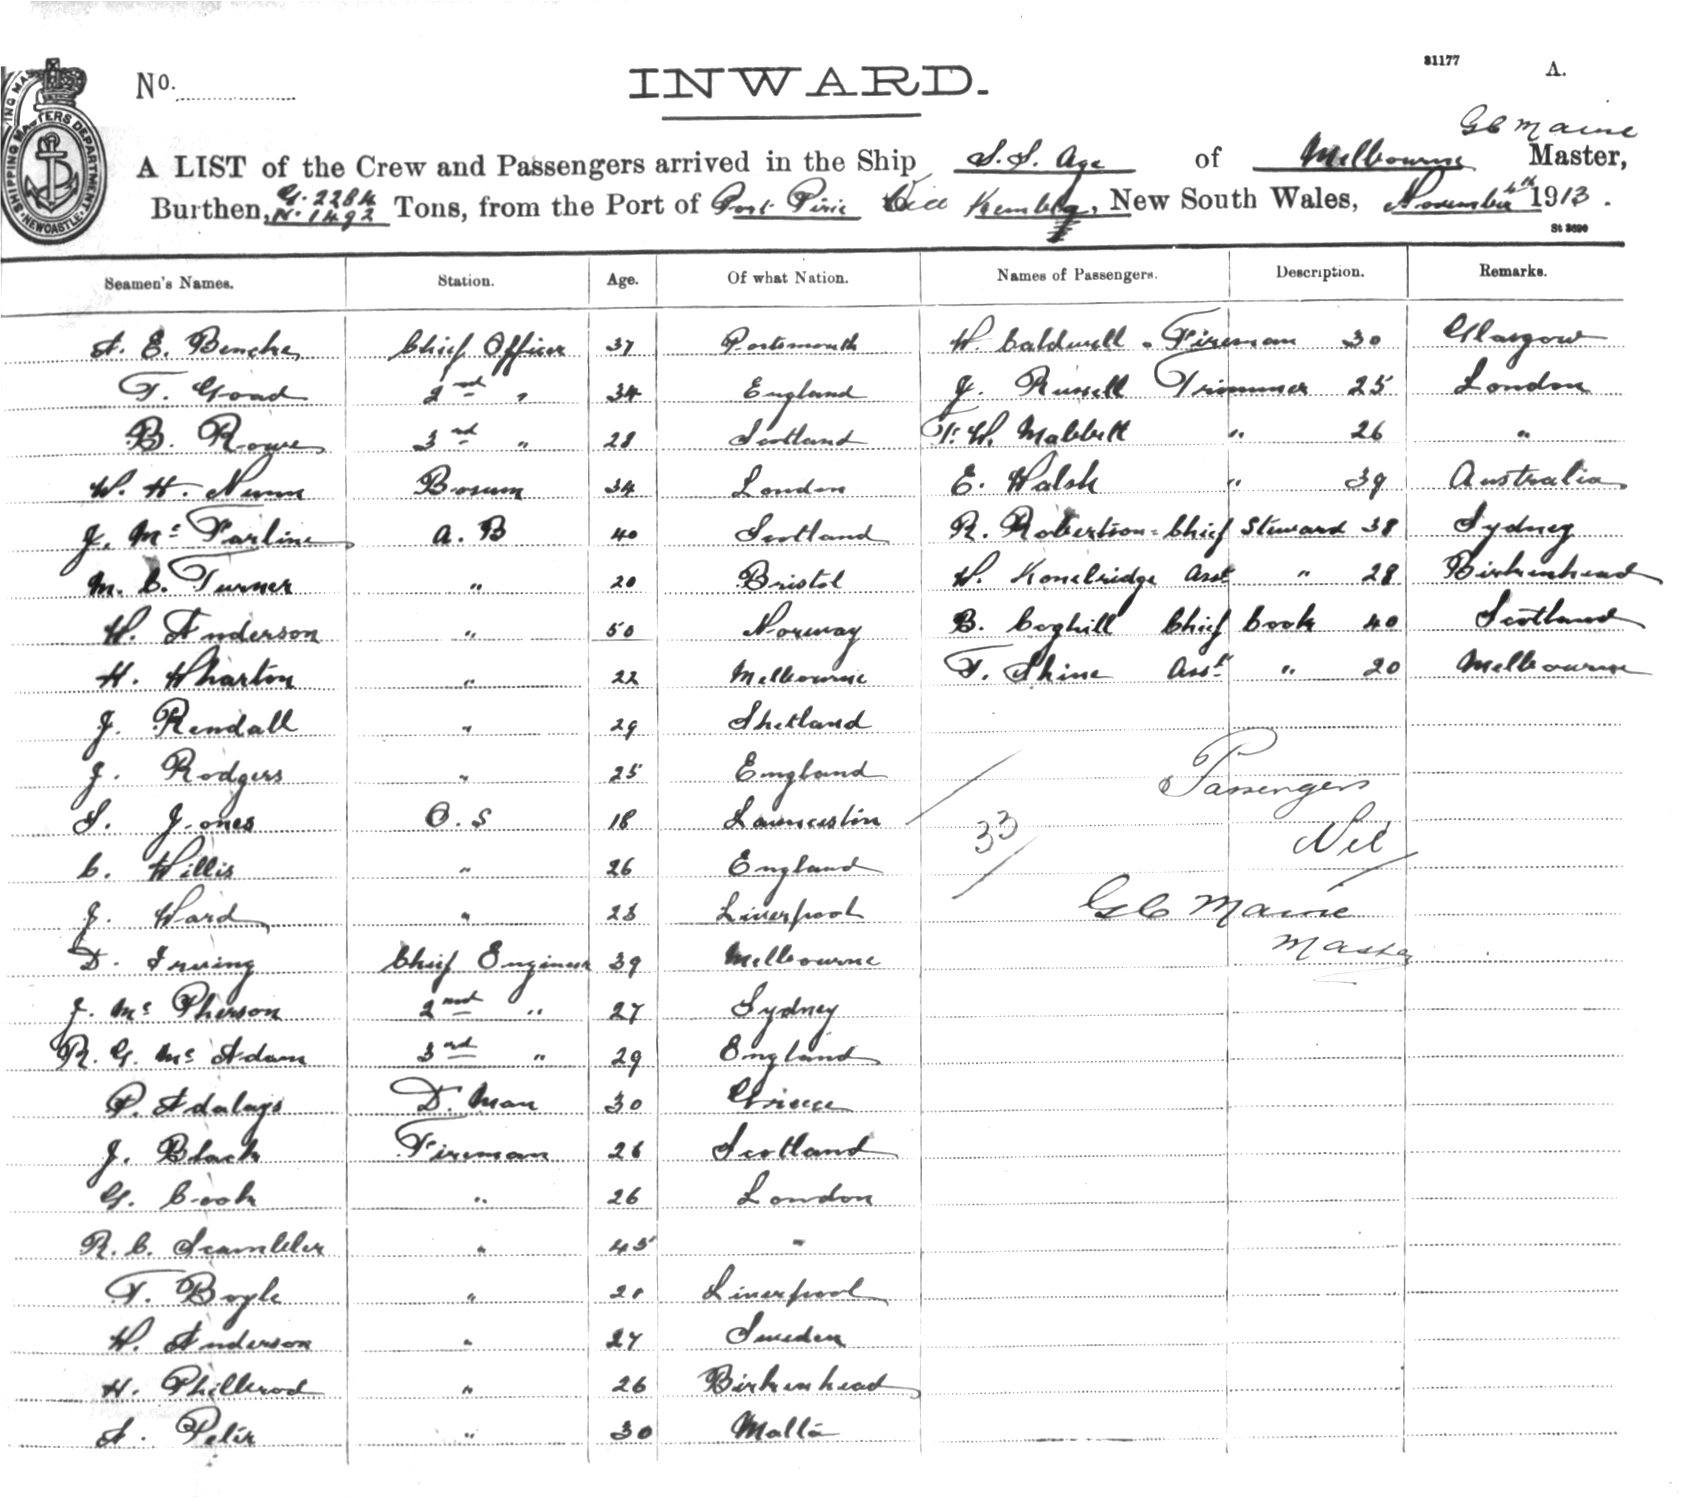 SHIPPING MASTERS DEPARTMENT NEWCASTLE
No.
INWARD.
31177
A.
G C Maine
A LIST of the Crew and Passengers arrived in the Ship S.S. Age of Melbourne Master,
Burthen, G. 2284 N. 1492 Tons, from the Port of Port Pirie Kembla, New South Wales, November 4th 1913.
St 3690
Seamen's Names. Station. Age. Of what Nation. Names of Passengers. Description. Remarks.
A. E. Chief Officer 37 Portsmouth W. Caldwell . Fireman 30 Glasgow
T. Goad 2nd " 34 England J. Russell Trimmer 25 London
B. Rowe 3rd " 28 Scotland T. W. Mabbett " 26 "
W. H. Nunn Bosum 34 London E. Walsh " 39 Australia
J. Mc Farline A.B 40 Scotland R. Robertson Chief Steward 38 Sydney
M. C. Turner " 20 Bristol W. Konebridge Asst " 28 Birkenhead
W. Anderson " 50 Norway B. Coghill Chief Cook 40 Scotland
H. Wharton " 22 Melbourne T. Shine Asst " 20 Melbourne
J. Rendall " 29 Shetland
J. Rodgers " 25 England
S. Jones O.S 18 Launceston
C. Willis " 26 England
J. Ward " Liverpool
D. Irving Chief Engineer 39 Melbourne
J. Mc Pherson 2nd " 27 Sydney
R. G. Mc Adam 3rd " 29 England
P. Adalays D. Man 30 Greece
J. Black Fireman 26 Scotland
G. Cook " 26 London
R. C. Scambler " 45 "
T. Boyle " Liverpool
W. Anderson " 27 Sweden
H. Philbrod " 26 Birkenhead
A. Peter " 30 Malta
33
Passengers
Nil
G C Maine
Master